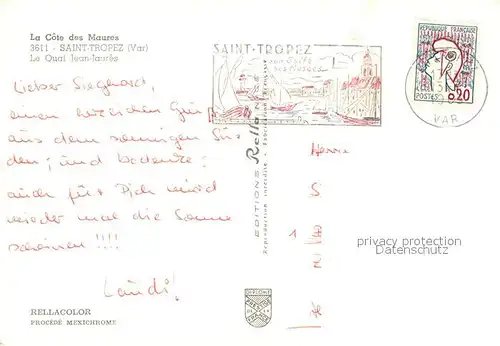 La Côte des Maures
3611 - SAINT-TROPEZ (Var)
Le Quai Jean-Jaurès
Lieber Sieghard,
einen herzlichen Gruß
aus dem sonnigen Sü-
den; und
auch für Dich wird
wieder mal die Sonne
scheinen!!!!
RELLACOLOR
PROCÉDÉ MEXICHROME
EDITIONS Rella NICE
Reproduction interdite
SAINT-TROPEZ
son Golfe
ses Musées
REPUBLIQUE FRANCAISE
POSTES 0,20
VAR
Herrn
S
1
privacy protection
Datenschutz